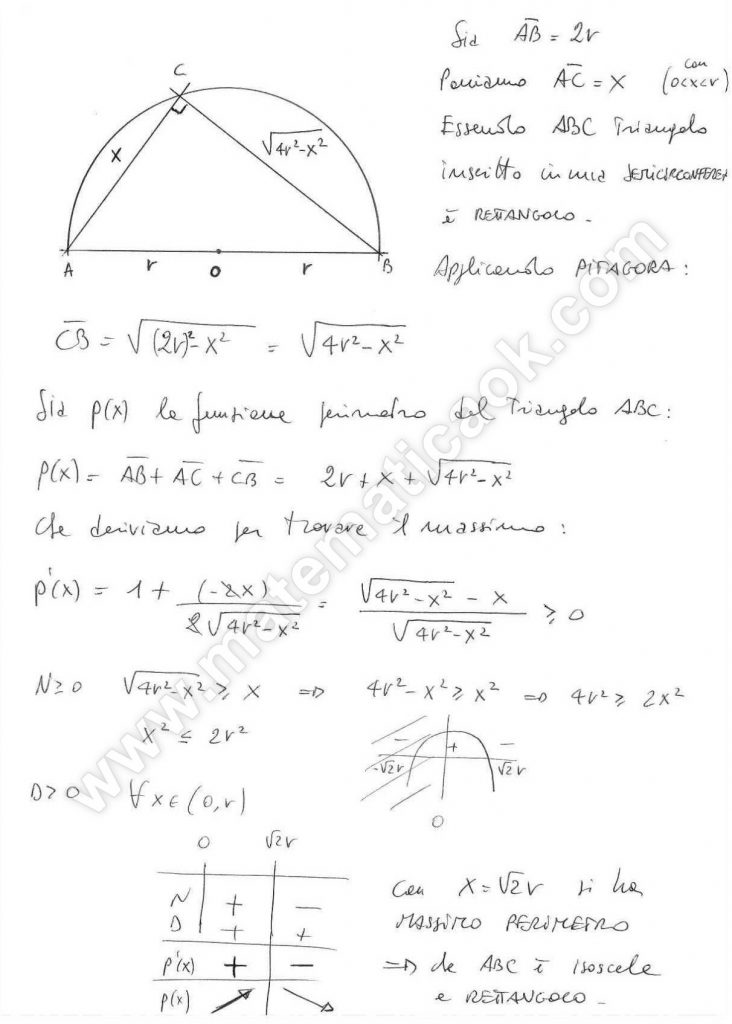 Sia AB = 2r
Poniamo AC = x (con 0<x<r)
Essendo ABC Triangolo
inscritto in una SEMICIRCONFEREN
è RETTANGOLO.
Applicando PITAGORA:
C
x
√4r²-x²
A
r
O
r
B
CB = √(2r)²-x² = √4r²-x²
Sia p(x) la funzione perimetro del Triangolo ABC:
p(x) = AB + AC + CB = 2r + x + √4r²-x²
che deriviamo per trovare il massimo:
p'(x) = 1 + (-2x) / 2√4r²-x² = √4r²-x² - x / √4r²-x² ≥ 0
N≥0 √4r²-x² ≥ x ⇒ 4r²-x² ≥ x² ⇒ 4r² ≥ 2x²
x² ≤ 2r²
- + -
-√2r √2r
0
D>0 ∀x∈(0,r)
0 √2r
N + -
D + +
p'(x) + -
p(x)
Con x=√2r si ha
MASSIMO PERIMETRO
⇒ da ABC è isoscele
e RETTANGOLO.
www.matematicaok.com